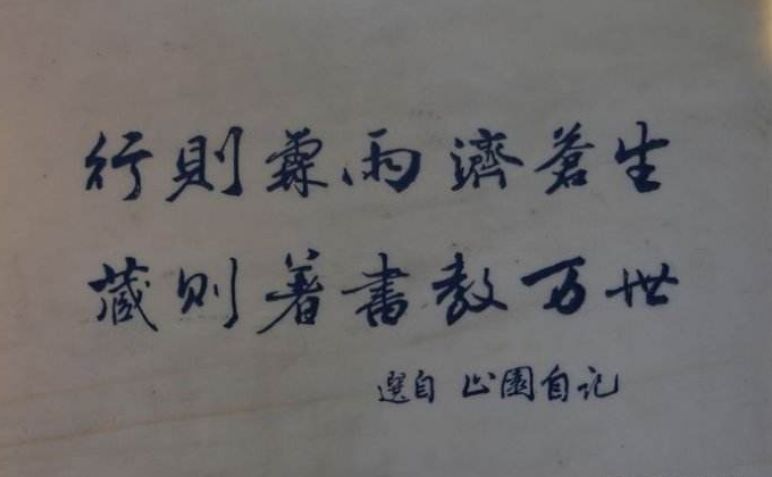 行則霖雨濟蒼生
藏则著書教万世
選自 止園自記